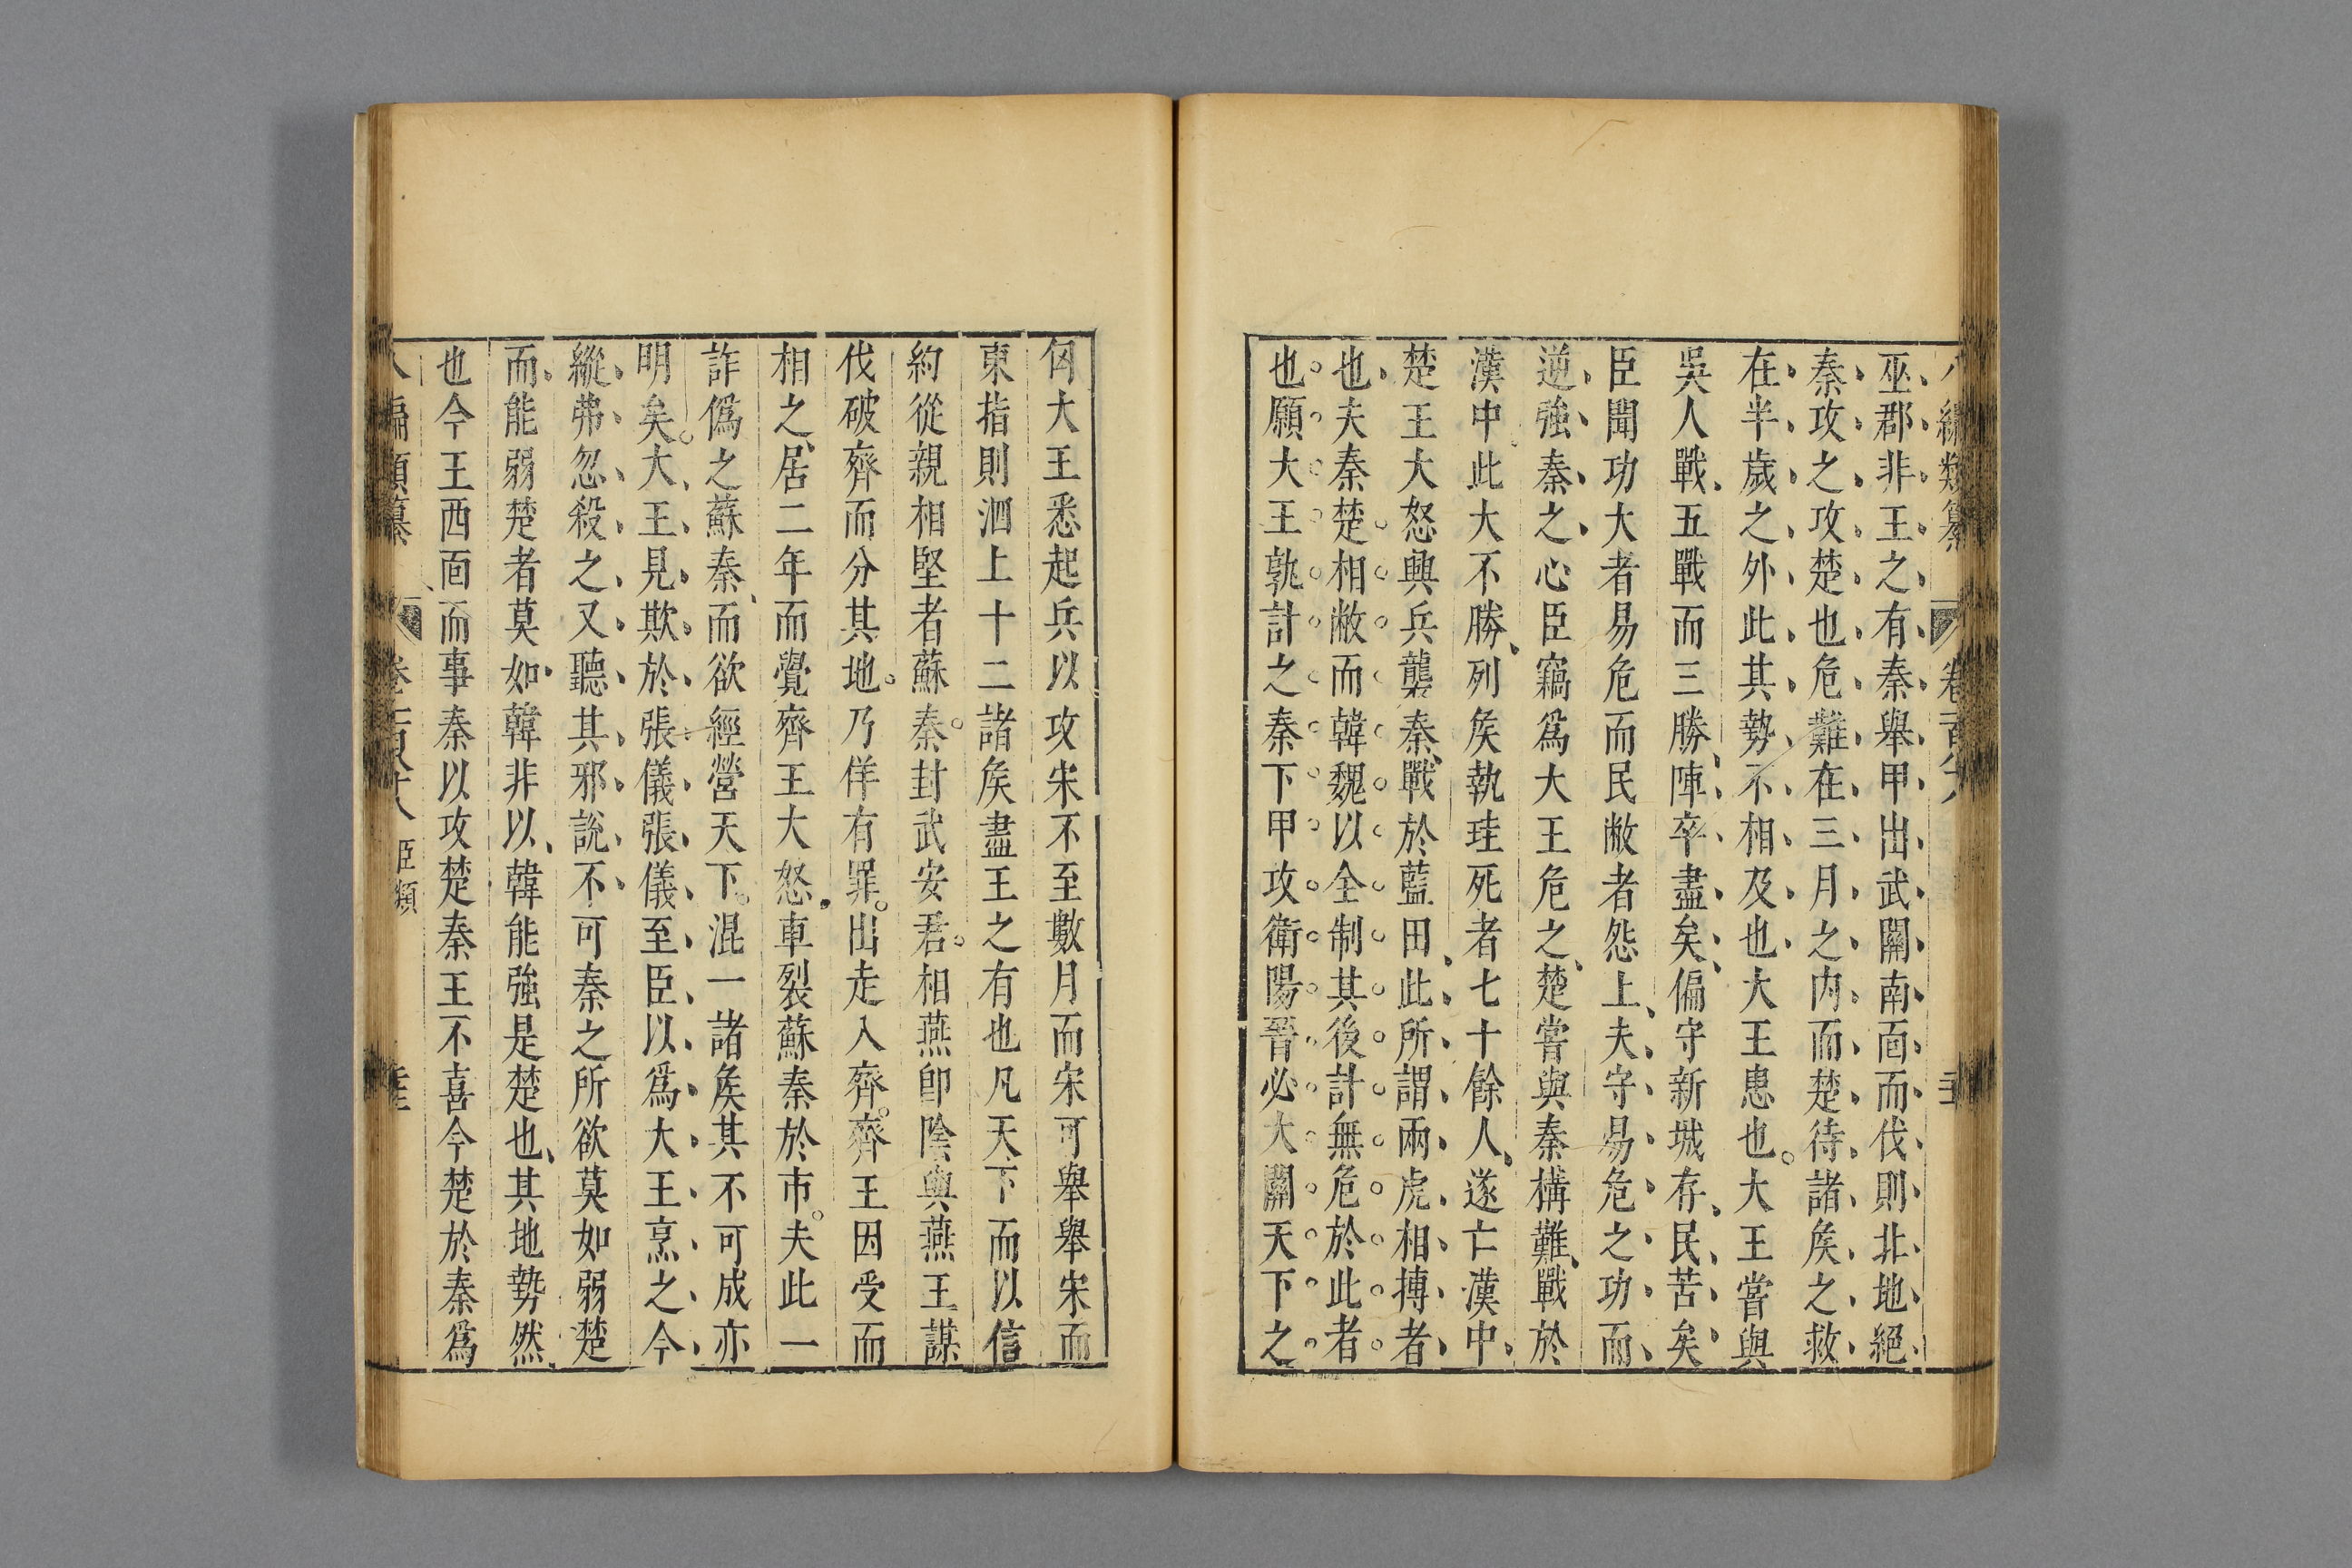 編類纂 卷百六
巫郡非王之有秦舉甲出武關南面而伐則北地絕
秦攻之攻楚也危難在三月之內而楚待諸矦之救
在半歲之外此其勢不相及也大王患也大王嘗與
吳人戰五戰而三勝陣卒盡矣偏守新城存民苦矣
臣聞功大者易危而民敝者怨上夫守易危之功而
逆強秦之心臣竊爲大王危之楚嘗與秦構難戰於
漢中此大不勝列矦執珪死者七十餘人遂亡漢中
楚王大怒興兵襲秦戰於藍田此所謂兩虎相搏者
也夫秦楚相敝而韓魏以全制其後計無危於此者
也願大王孰計之秦下甲攻衛陽晉必大關天下之
匈大王悉起兵以攻宋不至數月而宋可舉舉宋而
東指則泗上十二諸矦盡王之有也凡天下而以信
約從親相堅者蘇秦封武安君相燕卽陰與燕王謀
伐破齊而分其地乃佯有罪出走入齊齊王因受而
相之居二年而覺齊王大怒車裂蘇秦於市夫此一
詐僞之蘇秦而欲經營天下混一諸矦其不可成亦
明矣大王見欺於張儀張儀至臣以爲大王烹之今
縱弗忍殺之又聽其邪說不可秦之所欲莫如弱楚
而能弱楚者莫如韓非以韓能強是楚也其地勢然
也今王西面而事秦以攻楚秦王不喜今楚於秦爲
編類纂 卷 臣類